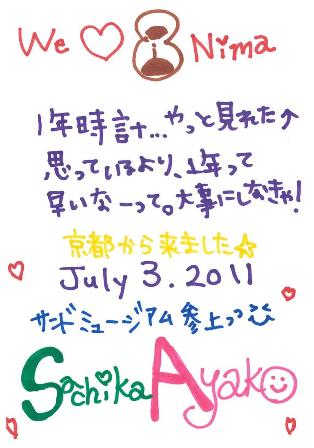 We ♡ Nima
1年時計...やっと見れた↑
思っているより、1年って
早いなーって。大事にしなきゃ!
京都から来ました☆
July 3. 2011
サンドミュージアム参上っっ
Sachika Ayako